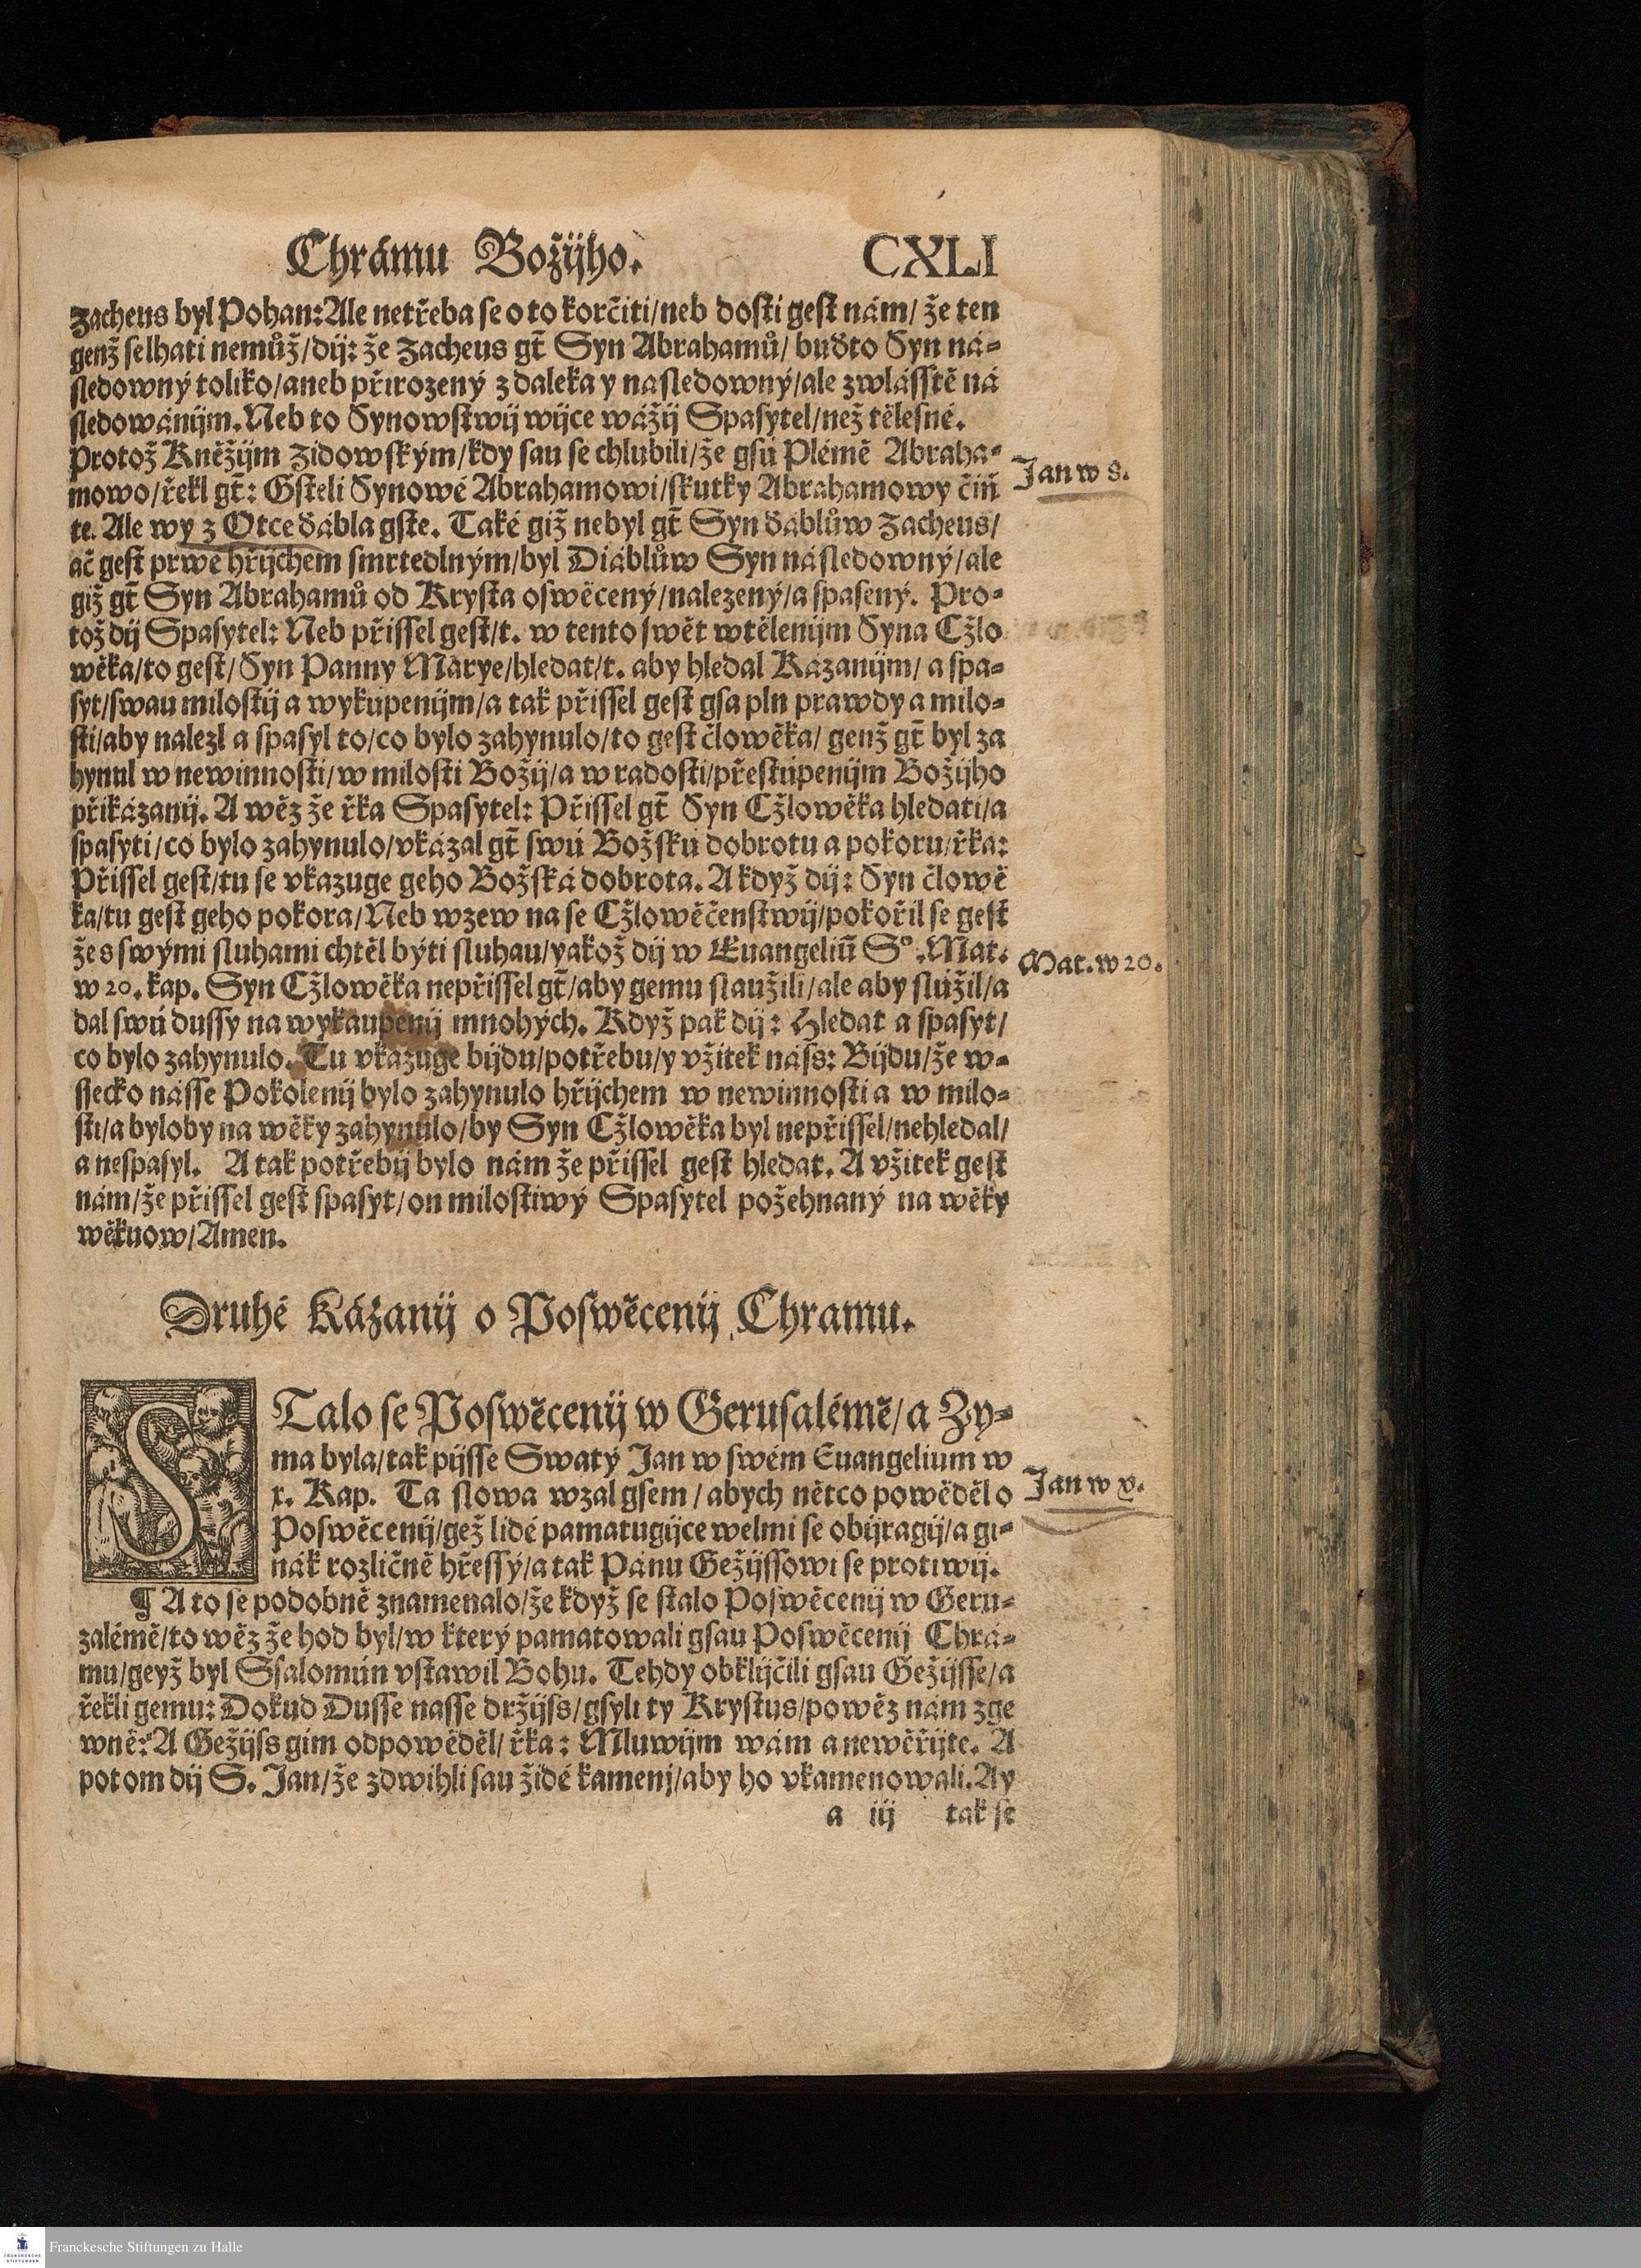 Chrámu Božijho. CXLI
Zacheus byl Pohan: Ale netřeba se o to korčiti/neb dosti gest nám/ že ten
genž selhati nemůž/dij: že Zacheus gt̄ Syn Abrahamů/ buďto Syn ná-
sledowný toliko/aneb přirozený z daleka y následowný/ale zwlásstě ná
sledowánijm. Neb to Synowstwij wijce wážij Spasytel/než tělesné.
Protož Kněžijm Židowským/kdy sau se chlubili/že gsú Plémě Abraha-
mowo/řekl gt̄: Gsteli Synowé Abrahamowi/skutky Abrahamowy čiň
te. Ale wy z Otce ďábla gste. Také giž nebyl gt̄ Syn ďáblůw Zacheus/
ač gest prwé hřijchem smrtedlným/byl Diáblůw Syn následowný/ale
giž gt̄ Syn Abrahamů od Krysta oswěcený/nalezený/a spasený. Pro-
tož dij Spasytel: Neb přissel gest/t. w tento swět wtělenijm Syna Cžlo
wěka/to gest/ Syn Panny Márye/hledat/t. aby hledal Kázanijm/ a spa-
syt/swau milostij a wykúpenijm/a tak přissel gest gsa pln prawdy a milo-
sti/aby nalezl a spasyl to/co bylo zahynulo/to gest člowěka/ genž gt̄ byl za
hynul w newinnosti/w milosti Božij/a w radosti/přestúpenijm Božijho
přikázanij. A wěz že řka Spasytel: Přissel gt̄ Syn Cžlowěka hledati/a
spasyti/co bylo zahynulo/vkázal gt̄ swú Božskú dobrotu a pokoru/řka:
Přissel gest/tu se vkazuge geho Božská dobrota. A když dij: Syn člowě
ka/tu gest geho pokora/Neb wzew na se Cžlowěčenstwij/pokořil se gest
že s swými sluhami chtěl býti sluhau/yakož dij w Euangeliū Sº. Mat.
w 20. kap. Syn Cžlowěka nepřissel gt̄/aby gemu slaužili/ale aby slúžil/a
dal swú dussy na wykaupenij mnohých. Když pak dij: Hledat a spasyt/
co bylo zahynulo. Tu vkazuge bijdu/potřebu/y vžitek náss: Bijdu/že w-
ssecko násse Pokolenij bylo zahynulo hřijchem w newinnosti a w milo-
sti/a byloby na wěky zahynulo/by Syn Cžlowěka byl nepřissel/nehledal/
a nespasyl. A tak potřebij bylo nám že přissel gest hledat. A vžitek gest
nám/že přissel gest spasyt/on milostiwý Spasytel požehnaný na wěky
wěkuow/Amen.
Jan w 8.
Mat. w 20.
Druhé Kázanij o Poswěcenij Chramu.
STalo se Poswěcenij w Gerusalémě/ a Zy-
ma byla/tak pijsse Swatý Jan w swém Euangelium w
x. Kap. Ta slowa wzal gsem/ abych nětco powěděl o
Poswěcenij/gež lidé pamatugijce welmi se obijragij/a gi-
nák rozličně hřessý/a tak Pánu Gežijssowi se protiwij.
Jan w x.
¶ A to se podobně znamenalo/že když se stalo Poswěcenij w Geru-
zalémě/to wěz že hod byl/w který pamatowali gsau Poswěcenij Chrá-
mu/geyž byl Ssalomún vstawil Bohu. Tehdy obklijčili gsau Gežijsse/a
řekli gemu: Dokud Dusse nasse držijss/gsyli ty Krystus/powěz nám zge
wně: A Gežijss gim odpowěděl/ řka: Mluwijm wám a newěřijte. A
potom dij S. Jan/že zdwihli sau židé kamenj/aby ho vkamenowali. Ay
a iij tak se
Franckesche Stiftungen zu Halle